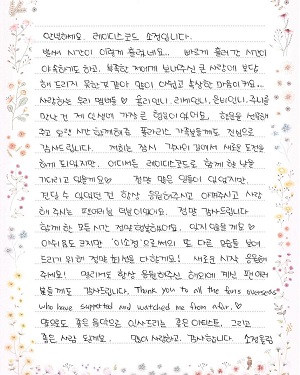 안녕하세요. 레이디스코드 소정입니다.
벌써 시간이 이렇게 흘렀네요... 빠르게 흘러간 시간이
야속하기도 하고, 부족한 저에게 보내주신 큰 사랑에 보답
해 드리지 못한것 같아 많이 아쉽고 속상한 마음이에요..
사랑하는 우리 멤버들 ♡ 애슐리언니, 리세언니, 은비언니, 주니를
만난 건 제 인생에 가장 큰 행운이었어요. 활동을 선택해
주고 오랜 시간 함께해준 폴라리스 가족분들께도 진심으로
감사드립니다. 저희는 잠시 각자의 길에서 새로운 도전을
하게 되었지만, 어디서든 레이디스코드로 함께 할 날을
기다리고 있을게요♡ 정말 많은 일들이 있었지만,
견딜 수 있었던 건 항상 응원해주시고 아껴주시고 사랑
해 주시는 팬여러분 덕분이었어요. 정말 감사드립니다
함께 한 모든 시간 정말 행복했어요. 잊지 않을게요 ♡
아쉬움도 크지만 '이소정'으로써의 또 다른 모습들 보여
드리기 위한 정말 최선을 다할게요! 새로운 시작 응원해
주세요! 멀리서도 항상 응원해주신 해외에 계신 팬여러
분들께도 감사드립니다. Thank you to all the fans overseas
who have supported and watched me from afar.♡
앞으로도 좋은 음악으로 인사드리는 좋은 아티스트, 그리고
좋은 사람 될게요. 많이 사랑하고, 감사합니다. 소정올림